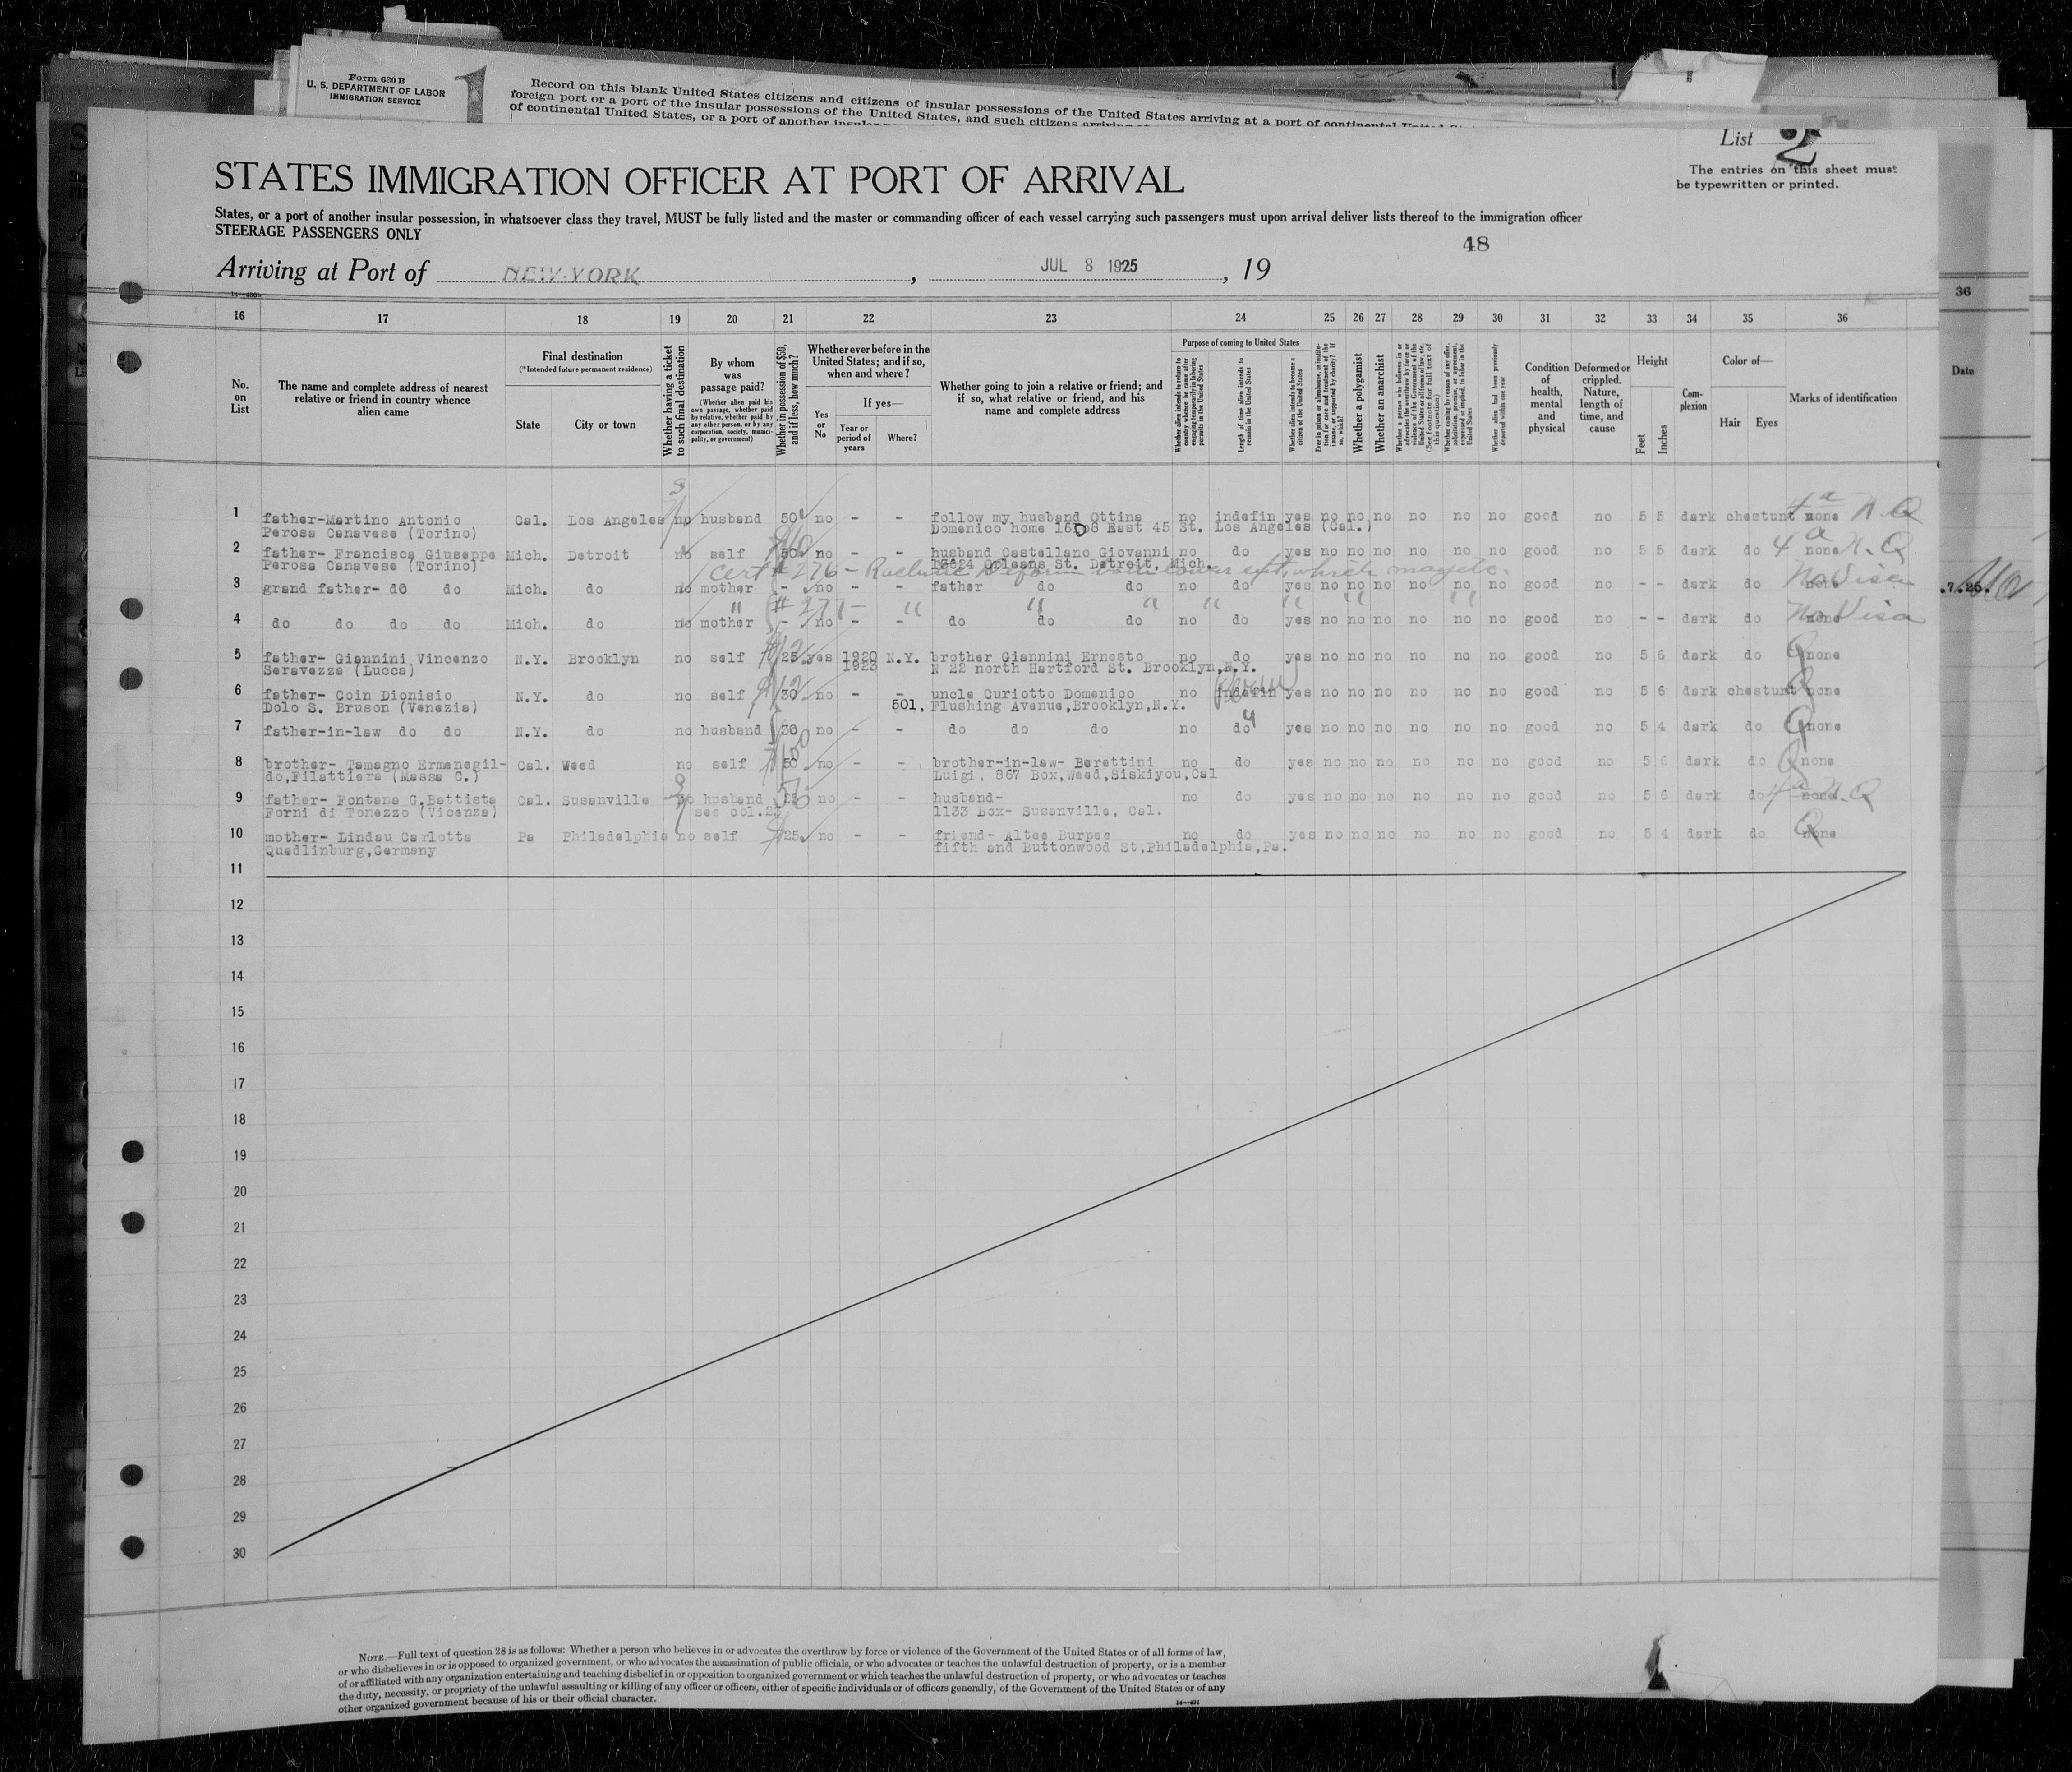 Form 630 B
U. S. DEPARTMENT OF LABOR
IMMIGRATION SERVICE
1
Record on this blank United States citizens and citizens of insular possessions of the United States arriving at a port of continental United
foreign port or a port of the insular possessions of the United States, and such citizens arriving at
of continental United States, or a port of another insular
List 2
The entries on this sheet must
be typewritten or printed.
STATES IMMIGRATION OFFICER AT PORT OF ARRIVAL
States, or a port of another insular possession, in whatsoever class they travel, MUST be fully listed and the master or commanding officer of each vessel carrying such passengers must upon arrival deliver lists thereof to the immigration officer
STEERAGE PASSENGERS ONLY
48
Arriving at Port of NEW-YORK, JUL 8 1925, 19
36
16 17 18 19 20 21 22 23 24 25 26 27 28 29 30 31 32 33 34 35 36
No. on List
The name and complete address of nearest relative or friend in country whence alien came
Final destination
(*Intended future permanent residence)
State
City or town
Whether having a ticket to such final destination
By whom was passage paid?
(Whether alien paid his own passage, whether paid by relative, whether paid by any other person, or by any corporation, society, municipality, or government)
Whether in possession of $50, and if less, how much?
Whether ever before in the United States; and if so, when and where?
Yes or No
If yes—
Year or period of years
Where?
Whether going to join a relative or friend; and if so, what relative or friend, and his name and complete address
Purpose of coming to United States
Whether alien intends to return to country whence he came after engaging temporarily in laboring pursuits in the United States
Length of time alien intends to remain in the United States
Whether alien intends to become a citizen of the United States
Ever in prison or almshouse, or institution for care and treatment of the insane, or supported by charity? If so, which?
Whether a polygamist
Whether an anarchist
Whether a person who believes in or advocates the overthrow by force or violence of the Government of the United States or all forms of law, etc. (See footnote for full text of this question)
Whether coming by reason of any offer, solicitation, promise, or agreement, expressed or implied, to labor in the United States
Whether alien had been previously deported within one year
Condition of health, mental and physical
Deformed or crippled. Nature, length of time, and cause
Height
Feet
Inches
Complexion
Color of—
Hair
Eyes
Marks of identification
Date
1 father-Martino Antonio Cal. Los Angeles no husband 50 no - - follow my husband Ottina no indefin yes no no no no no no good no 5 5 dark chestunt none N.Q
Perosa Canavese (Torino) Domenico home East 45 St. Los Angeles (Cal.)
2 father- Francisca Giuseppe Mich. Detroit no self 50 no - - husband Castellano Giovanni no do yes no no no no no no good no 5 5 dark do none N.Q
Perosa Canavese (Torino) Orleans St. Detroit, Mich.
Cert # 276 -
3 grand father- do do Mich. do no mother - no - - father do do no do yes no no no no no no good no - - dark do none No Visa
" # 277 - " " " " " " "
4 do do do do Mich. do no mother - no - - do do do no do yes no no no no no no good no - - dark do none No Visa
5 father- Giannini Vincenzo N.Y. Brooklyn no self 25 yes 1920 N.Y. brother Giannini Ernesto no do yes no no no no no no good no 5 6 dark do none
Seravezza (Lucca) 1923 N 22 north Hartford St. Brooklyn,N.Y.
6 father- Coin Dionisio N.Y. do no self 30 no - - uncle Curiotto Domenico no indefin yes no no no no no no good no 5 6 dark chestunt none
Dolo S. Bruson (Venezia) 501, Flushing Avenue,Brooklyn,N.Y.
7 father-in-law do do N.Y. do no husband 30 no - - do do do no do yes no no no no no no good no 5 4 dark do none
8 brother- Tamagno Ermenegil- Cal. Weed no self 50 no - - brother-in-law- Berettini no do yes no no no no no no good no 5 6 dark do none
do,Filattiera (Massa C.) Luigi, 867 Box,Weed,Siskiyou,Cal
9 father- Fontana G.Battista Cal. Susanville husband no - - husband- no do yes no no no no no no good no 5 6 dark do none N.Q
Forni di Tonezzo (Vicenza) see col.23 1133 Box- Susanville, Cal.
10 mother- Lindau Carlotta Pa Philadelphia no self 25 no - - friend- Altee Burpee no do yes no no no no no no good no 5 4 dark do none
Quedlinburg,Germany fifth and Buttonwood St,Philadelphia,Pa.
11
12
13
14
15
16
17
18
19
20
21
22
23
24
25
26
27
28
29
30
NOTE.—Full text of question 28 is as follows: Whether a person who believes in or advocates the overthrow by force or violence of the Government of the United States or of all forms of law,
or who disbelieves in or is opposed to organized government, or who advocates the assassination of public officials, or who advocates or teaches the unlawful destruction of property, or is a member
of or affiliated with any organization entertaining and teaching disbelief in or opposition to organized government or which teaches the unlawful destruction of property, or who advocates or teaches
the duty, necessity, or propriety of the unlawful assaulting or killing of any officer or officers, either of specific individuals or of officers generally, of the Government of the United States or of any
other organized government because of his or their official character.